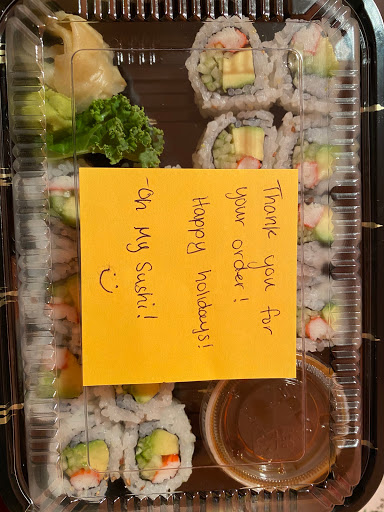 Thank you for
your order!
Happy holidays!
-Oh My Sushi!
:)